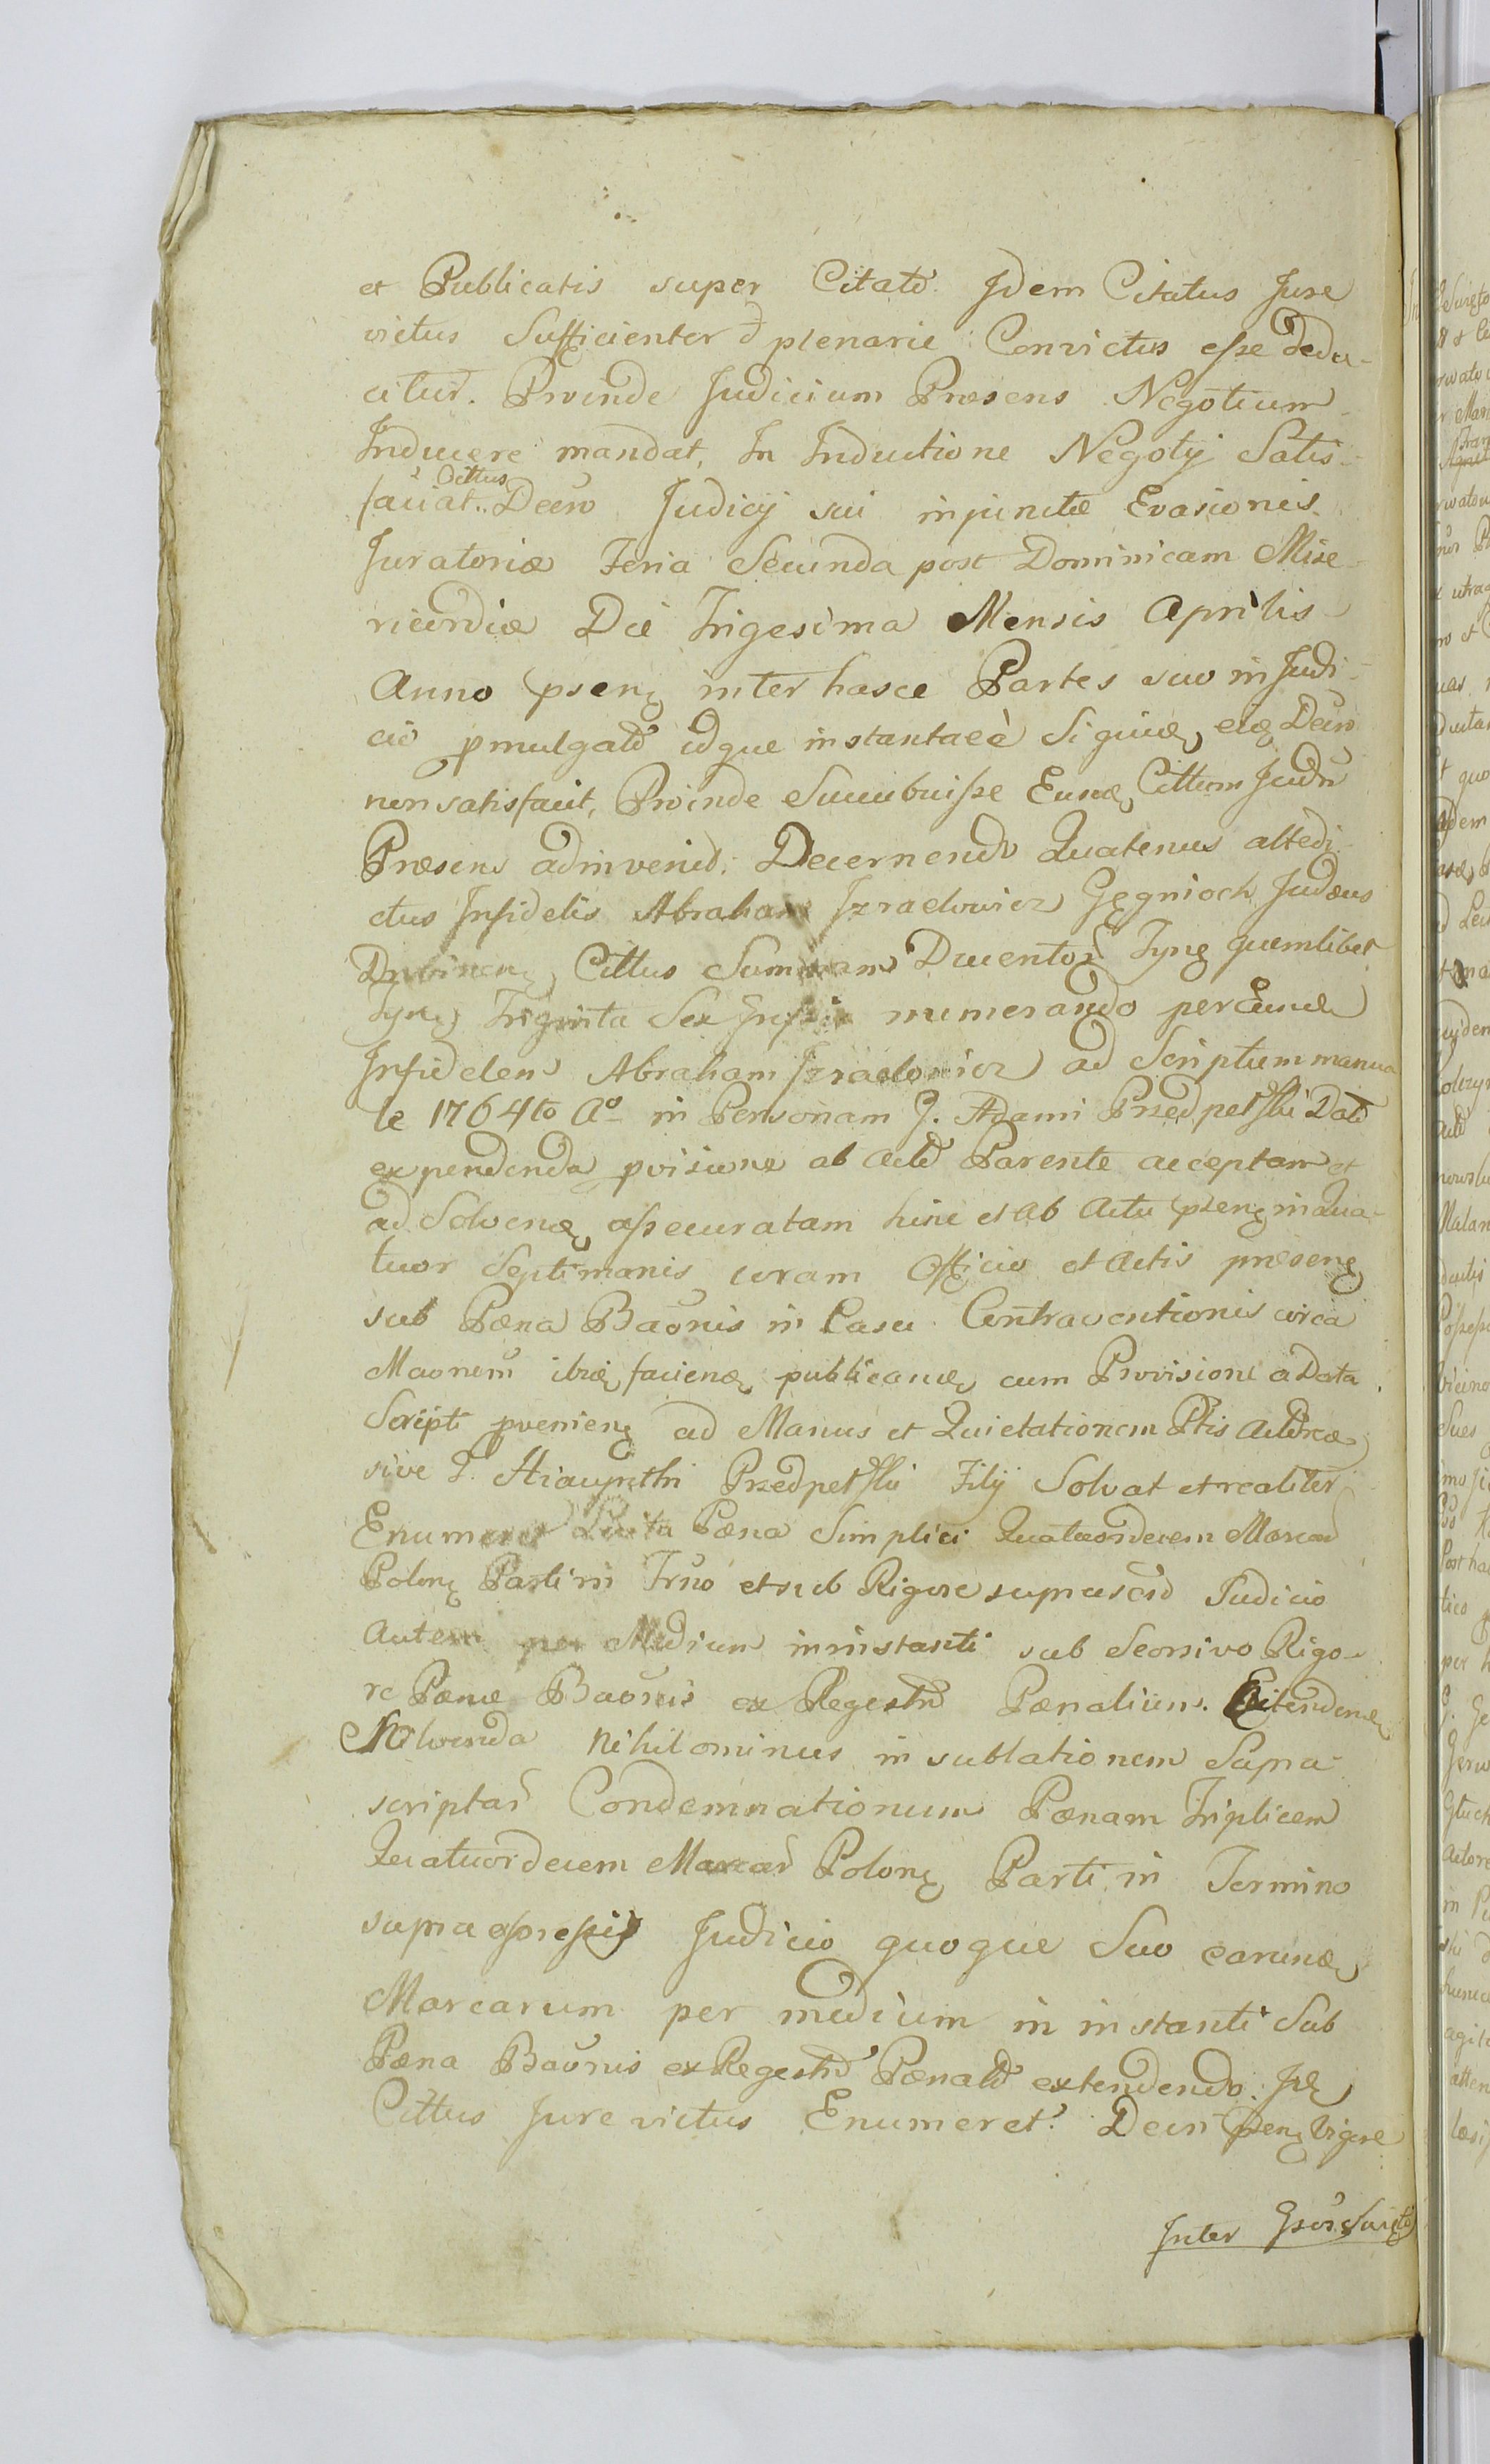 et Publicatis super Citato Idem Citatus Jure
victus Sufficienter & plenarie Convictus esse dedu-
citur. Proinde Judicium Præsens Negotium
Inducere mandat, In Inductione Negotij Satis-
faciat Cittus Decro Judicij sui injunctæ Evasionis
Juratoriæ Feria Secunda post Dominicam Mise-
ricordiæ Die Trigesima Mensis Aprilis
Anno psenę inter hasce Partes suo in Judi-
cio pmulgato idque instantaeè eię Decro
non satisfecit, Proinde Succubuisse Eund Cittum Judm
Præsens adinvenit. Decernendo Quatenus altedi-
ctus Infidelis Abraham Izraelowicz Judæus
Cittus Summam Ducentor Tynę quemlibet
Tynę Triginta Sex numerando per Eund
Infidelem Abraham Izraelowicz ad Scriptum manua
le 1764to Ao in Personam G. Adami Przedpełski Dato
expendenda pvisione ab Acto Parente acceptam et
ad Solvend assecuratam hinc et ab Actu psenę in Qua-
tuor Septimanis coram Officio et Actis præsenę
sub Pæna Baõnis in Casu Contraventionis circa
Maonem ibid faciend publicand cum Provisione a Data
Scripti pvenienę ad Manus et Quietationem Ptis Actoreæ
sive G. Hiacynthi Przedpełski Filij Solvat et realiter
Enumeret Pæna Simplici Quatuordecem Marcar
Polonę Parti in Trno et sub Rigore suprascto Judicio
Autem per Medium in instanti sub Seorsivo Rigo-
re Pænæ Baõnis ex Regestro Pænalium. Extendend
Solvenda Nihilominus in sublationem Supra-
scriptar Condemnationum Pænam Triplicem
Quatuordecem Marcar Polonę Parti in Termino
supra expressis Judicio quoque Suo earund
Marcarum per medium in instanti Sub
Pæna Baõnis ex Regestro Pænali extendendo. Id
Cittus Jure victus Enumeret. Decri psenę Vigore
Inter